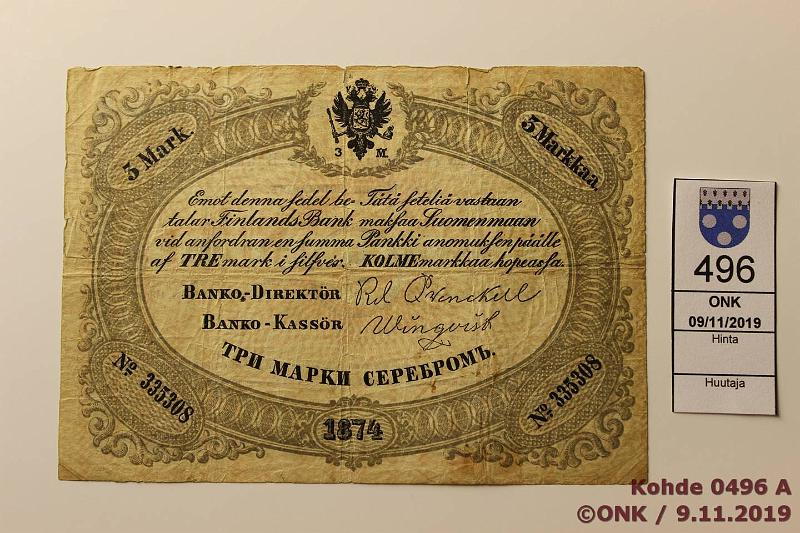 3 M.
3 Mark.
3 Markkaa
Emot denna sedel be-
talar Finlands Bank
vid anfordran en summa
af TRE mark i silfver.
Tätä seteliä vastaan
maksaa Suomenmaan
Pankki anomuksen päälle
KOLME markkaa hopeassa.
BANKO-DIREKTÖR
BANKO-KASSÖR Wingvist
ТРИ МАРКИ СЕРЕБРОМЪ.
No 335308
No 335308
1874
496
ONK
09/11/2019
Hinta
Huutaja
Kohde 0496 A
©ONK / 9.11.2019